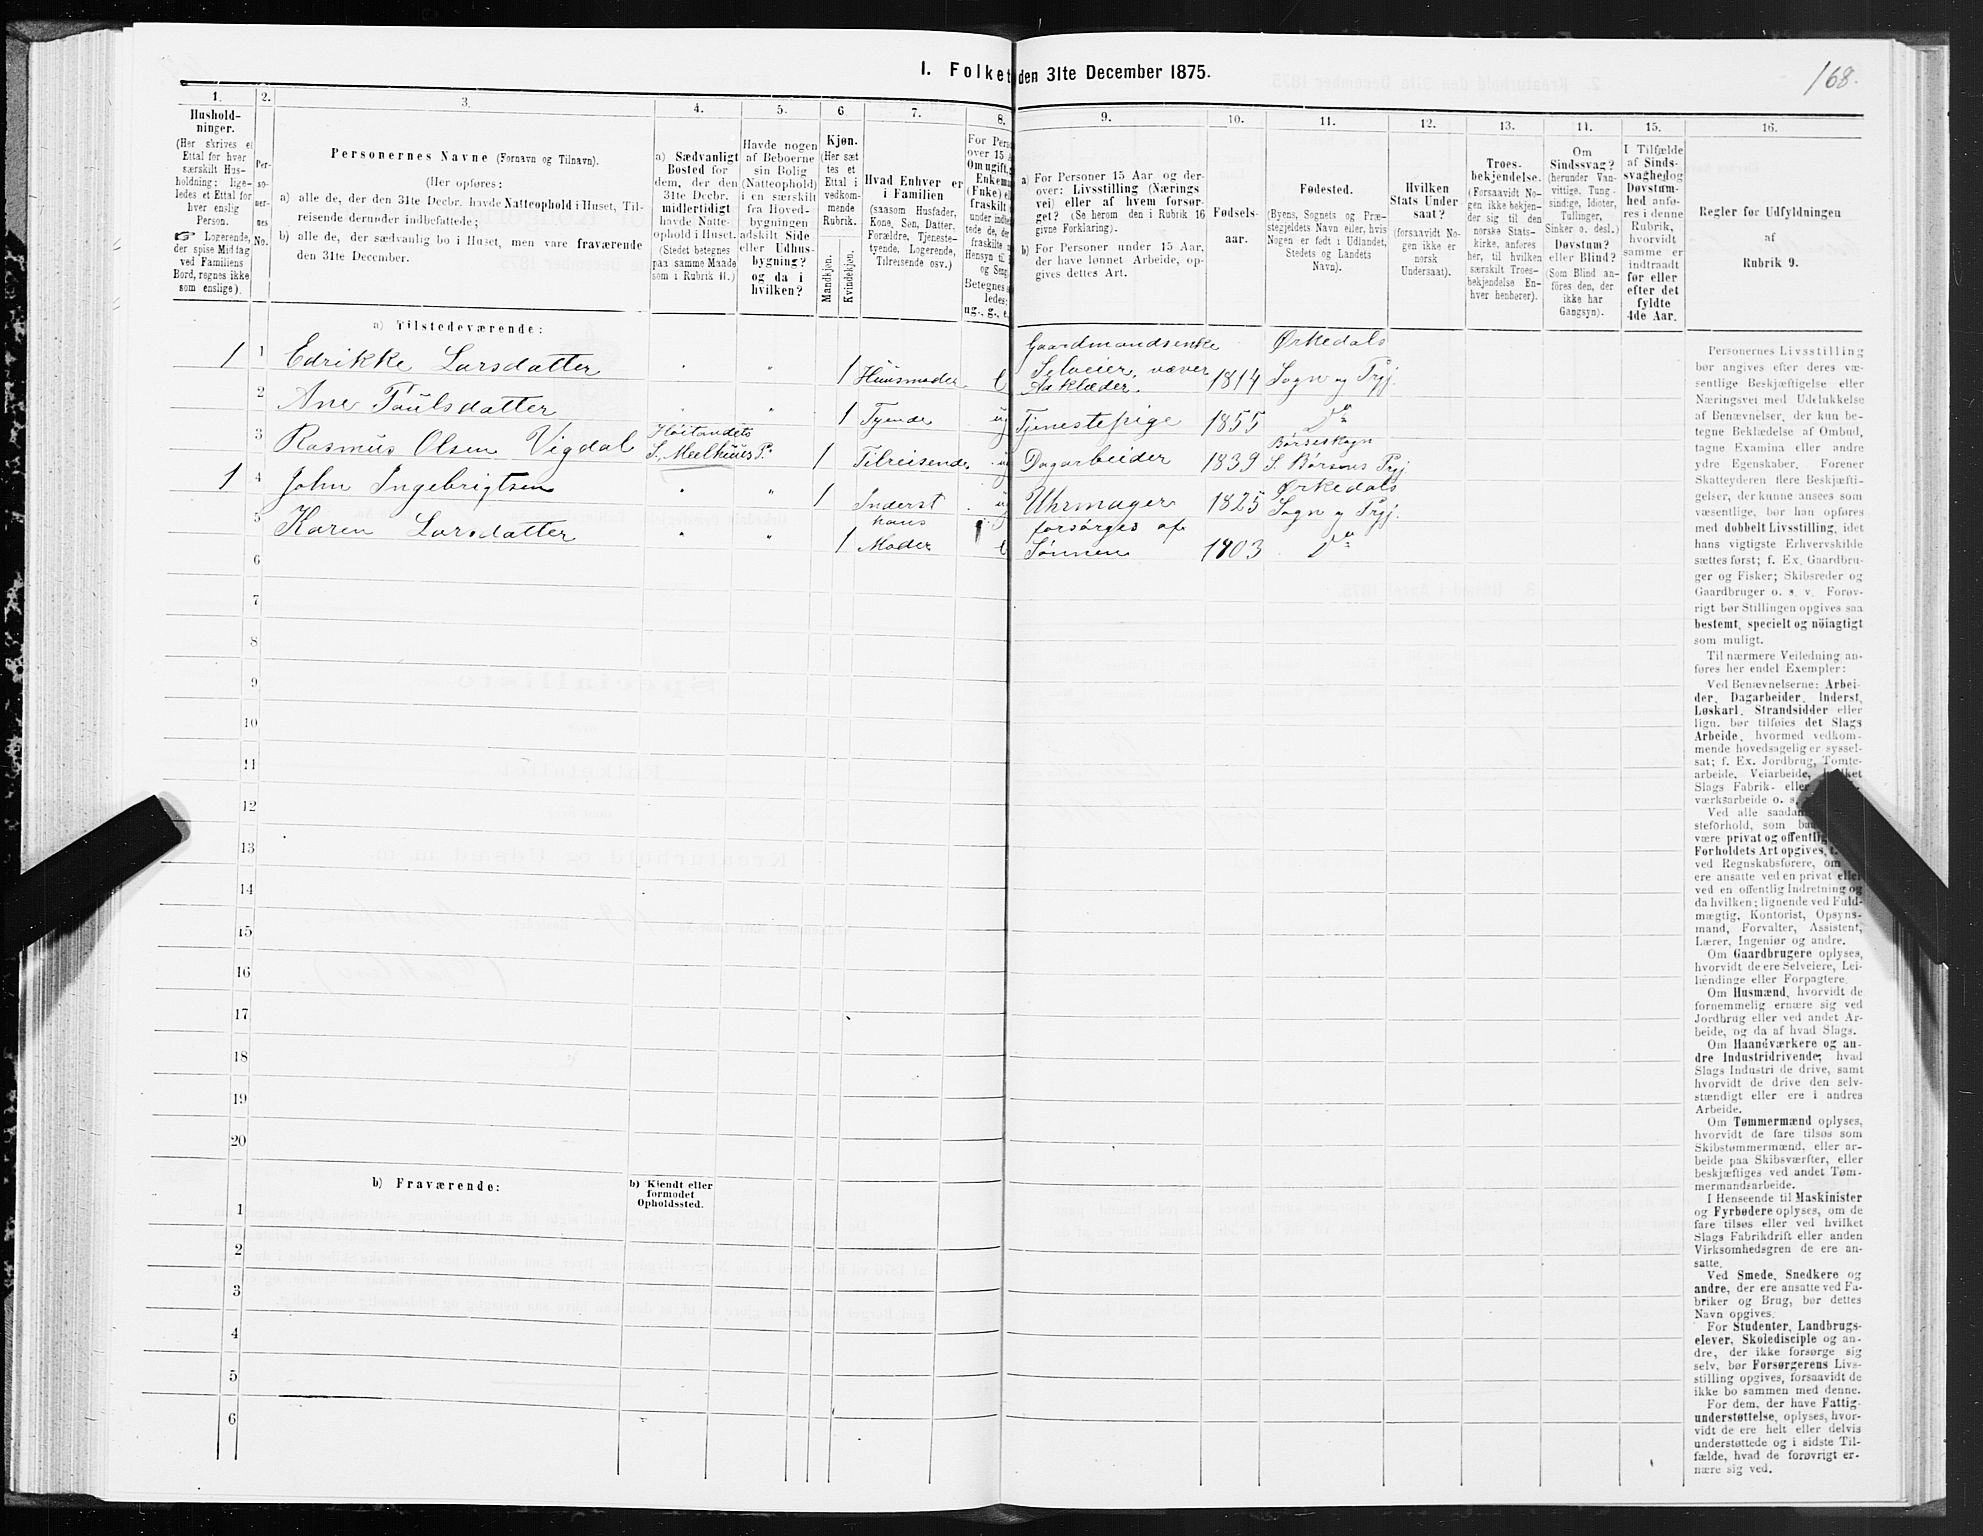 I. Folket
den 31te December 1875.
168.
1.
2.
3.
4.
5.
6
7.
8.
9.
10.
11.
12.
13.
14.
15.
16.
Hushold-
ninger.
(Her skrives et
Ettal for hver
særskilt Hus-
holdning; lige-
ledes et Ettal for
hver enslig
Person.
☞ Logerende,
der spise Middag
ved Familiens
Bord, regnes ikke
som enslige).
Per-
so-
ner-
nes
No.
Personernes Navne (Fornavn og Tilnavn).
(Her opføres:
a) alle de, der den 31te Decbr. havde Natteophold i Huset, Til-
reisende derunder indbefattede;
b) alle de, der sædvanlig bo i Huset, men vare fraværende
den 31te December.
a) Sædvanligt
Bosted for
dem, der den
31te Decbr.
midlertidigt
havde Natte-
ophold i Huset.
(Stedet betegnes
paa samme Maade
som i Rubrik 11.)
Havde nogen
af Beboerne
sin Bolig
(Natteophold)
i en særskilt
fra Hoved-
bygningen
adskilt Side
eller Udhus-
bygning?
og da i
hvilken?
Kjøn.
(Her sæt
tes et
Ettal i
vedkom-
mende
Rubrik.
Mandkjøn.
Kvindekjøn.
Hvad Enhver er
i Familien
(saasom Husfader,
Kone, Søn, Datter,
Forældre, Tjeneste-
tyende, Logerende,
Tilreisende osv.)
For Pers
over 15 a
Om ugift,
Enkem
(Fnke) el
fraskilt
under indbe
tede de, der
fraskilte
Hensyn til B
og Seng.
Betegnes s
ledes:
ug., g., e.
a) For Personer 15 Aar og der-
over: Livsstilling (Nærings
vei) eller af hvem forsør-
get? (Se herom den i Rubrik 16
givne Forklaring).
b) For Personer under 15 Aar,
der have lønnet Arbeide, op-
gives dettes Art.
Fødsels-
aar.
Fødested.
(Byens, Sognets og Præ-
stegjeldets Navn eller, hvis
Nogen er født i Udlandet,
Stedets og Landets
Navn).
Hvilken
Stats Under-
saat?
(forsaavidt No-
gen ikke er
norsk
Undersaat).
Troes-
bekjendelse.
(Forsaavidt No-
gen ikke bekjen-
der sig til den
norske Stats-
kirke, anføres
her, til hvilken
særskilt Troes-
bekjendelse En-
hver henhører).
Om
Sindssvag?
(herunder Van-
vittige, Tung-
sindige, Idioter,
Tullinger,
Sinker o. desl.)
Døvstum?
eller Blind?
(Som Blind an-
føres den, der
ikke har
Gangsyn).
I Tilfælde
af Sinds-
svaghed og
Døvstum-
hed anfø-
res i denne
Rubrik,
hvorvidt
samme er
indtraadt
før eller
efter det
fyldte
4de Aar.
Regler for Udfyldningen
af
Rubrik 9.
a) Tilstedeværende:
1 1 Edrikke Larsdatter " " 1 Huusmoder e Gaardmandsenke
Selveier, væver
Aaklæder. 1814 Ørkedals
Sogn og Prgj.
2 Ane Poulsdatter " " 1 Tyende ug Tjenestepige 1855 Do
3 Rasmus Olsen Vigdal Høilandets
S. Meelhuus P. " 1 Tilreisende ug Dagarbeider 1839 Børseskogn
S. Børsens Prgj
1 4 John Ingebrigtsen " " 1 Inderst ug Uhrmager 1825 Ørkedals
Sogn og Prgj.
5 Karen Larsdatter " " 1 hans
Moder e forsørges af
Sønnen 1803 Do
6
7
8
9
10
11
12
13
14
15
16
17
18
19
20
b) Fraværende:
b) Kjendt eller
formodet
Opholdssted.
1
2
3
4
5
6
Personernes Livsstilling
bør angives efter deres væ-
sentlige Beskjæftigelse eller
Næringsvei med Udelukkelse
af Benævnelser, der kun be-
tegne Beklædelse af Ombud,
tagne Examina eller andre
ydre Egenskaber. Forener
Skatteyderen flere Beskjæfti-
gelser, der kunne ansees som
væsentlige, bør han opføres
med dobbelt Livsstilling, idet
hans vigtigste Erhvervskilde
sættes først; f. Ex. Gaardbru-
ger og Fisker; Skibsreder og
Gaardbruger o. s. v. Forøv-
rigt bør Stillingen opgives saa
bestemt, specielt og nöiagtigt
som muligt.
Til nærmere Veiledning an-
føres her endel Exempler:
Ved Benævnelserne: Arbei-
der, Dagarbeider, Inderst,
Løskarl, Strandsidder eller
lign. bør tilføies det Slags
Arbeide, hvormed vedkom-
mende hovedsagelig er syssel-
sat; f. Ex. Jordbrug, Tomte-
arbeide, Veiarbeide, hvilket
Slags Fabrik- eller
værksarbeide o. s.
Ved alle saadan
steforhold, som baa
være privat og offentlig
Forholdets Art opgives, f.
ved Regnskabsførere, om
ere ansatte ved en privat eller
ved en offentlig Indretning og
da hvilken; lignende ved Fuld-
mægtig, Kontorist, Opsyns-
mand, Forvalter, Assistent,
Lærer, Ingeniør og andre.
Om Gaardbrugere oplyses,
hvorvidt de ere Selveiere, Lei-
lændinge eller Forpagtere.
Om Husmænd, hvorvidt de
fornemmelig ernære sig ved
Jordbrug eller ved andet Ar-
beide, og da af hvad Slags.
Om Haandværkere og an-
dre Industridrivende, hvad
Slags Industri de drive, samt
hvorvidt de drive den selv-
stændigt eller ere i andres
Arbeide.
Om Tømmermænd oplyses,
hvorvidt de fare tilsøs som
Skibstømmermænd, eller ar-
beide paa Skibsværfter, eller
beskjæftiges ved andet Tøm-
mermandsarbeide.
I Henseende til Maskinister
og Fyrbødere oplyses, om de
fare tilsøs eller ved hvilket
Slags Fabrikdrift eller anden
Virksomhedsgren de ere an-
satte.
Ved Smede, Snedkere og
andre, der ere ansatte ved Fa-
briker og Brug, bør dettes
Navn opgives.
For Studenter, Landbrugs-
elever, Skoledisciple og an-
dre, der ikke forsørge sig
selv, bør Forsørgerens Livs-
stilling opgives, forsaavidt de
ikke bo sammen med denne.
For dem, der have Fattig-
understøttelse, oplyses, hvor-
vidt de ere helt eller delvis
understøttede og i sidste Til-
fælde, hvad de forøvrigt er-
nære sig ved.